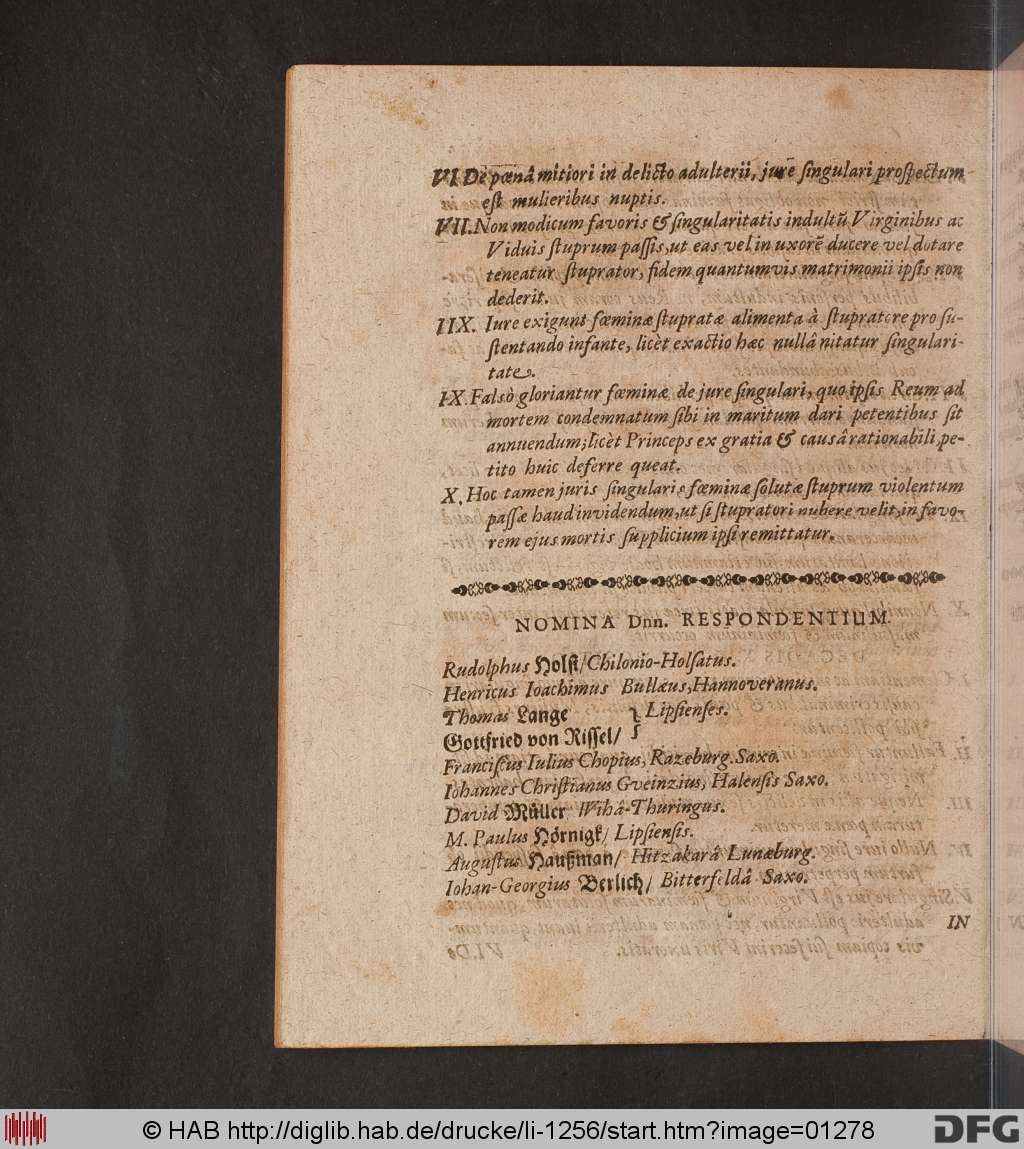 VI. De pœnâ mitiori in delicto adulterii, jurē ſingulari proſpectum
eſt mulieribus nuptis.
VII. Non modicum favoris & ſingularitatis indultũ Virginibus ac
Viduis ſtuprum paſſis, ut eas vel in uxorẽ ducere vel dotare
teneatur ſtuprator, fidem quantumvis matrimonii ipſis non
dederit.
IIX. Iure exigunt fœminæ ſtupratæ alimenta à ſtupratore pro ſu-
ſtentando infante, licèt exactio hæc nullâ nitatur ſingulari-
tate.
IX. Falsò gloriantur fœminæ de jure ſingulari, quo ipſis Reum ad
mortem condemnatum ſibi in maritum dari petentibus ſit
annuendum; licèt Princeps ex gratia & causâ rationabili, pe-
tito huic deferre queat.
X. Hoc tamen juris ſingularis fœminæ ſolutæ ſtuprum violentum
paſſæ haud invidendum, ut ſi ſtupratori nubere velit, in favo-
rem ejus mortis ſupplicium ipſi remittatur.
NOMINA Dnn. RESPONDENTIUM.
Rudolphus Holſt/ Chilonio-Holſatus.
Henricus Ioachimus Bullæus, Hannoveranus.
Thomas Lange } Lipſienſes.
Gottfried von Riſſel/
Franciſcus Iulius Chopius, Razeburg. Saxo.
Iohannes Chriſtianus Gveinzius, Halenſis Saxo.
David Müller, Wihâ-Thuringus.
M. Paulus Hörnigk/ Lipſienſis.
Auguſtus Haußman/ Hitzakarâ Lunæburg.
Iohan-Georgius Berlich/ Bitterfeldâ Saxo.
IN
© HAB http://diglib.hab.de/drucke/li-1256/start.htm?image=01278
DFG